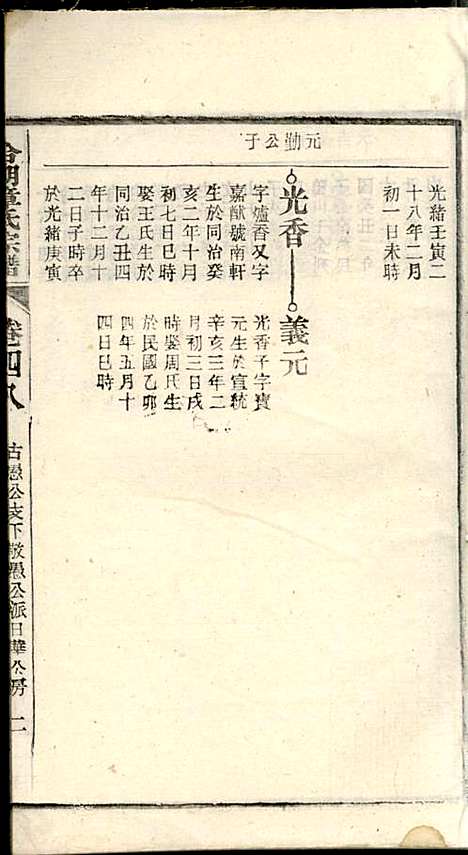 元勤公子
光緒壬寅二
十八年二月
初一日未時
光香
義元
字爐香又字
嘉猷號南軒
生於同治癸
亥二年十月
初七日巳時
娶王氏生於
同治乙丑四
年十二月十
二日子時卒
於光緒庚寅
光香子字寶
元生於宣統
辛亥三年二
月初三日戌
時娶周氏生
於民國乙卯
四年五月十
四日巳時
童氏宗譜
卷四八
古愚公支下敬愚公派日華公房
二